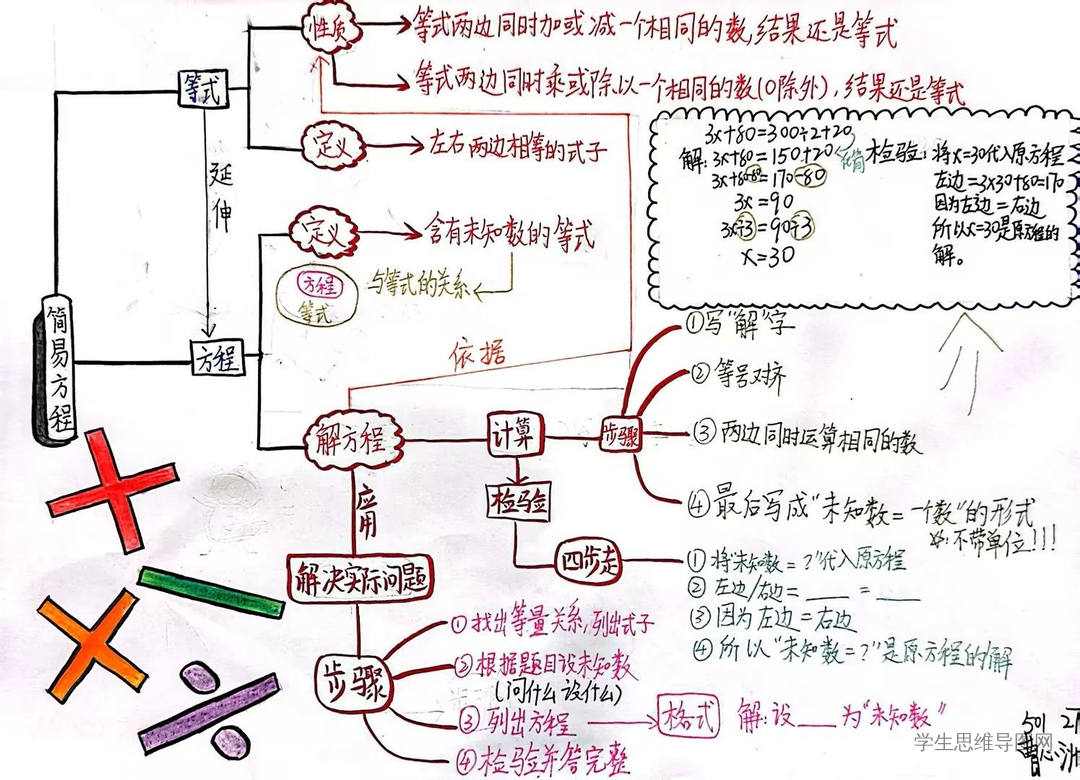 性质
等式两边同时加或减一个相同的数,结果还是等式
等式两边同时乘或除以一个相同的数(0除外),结果还是等式
等式
定义
左右两边相等的式子
延伸
定义
含有未知数的等式
方程
等式
与等式的关系
简易方程
方程
依据
3x+80=300÷2+20
解:3x+80=150+20
化简
3x+80-80=170-80
3x=90
3x÷3=90÷3
x=30
检验:将x=30代入原方程
左边=3x30+80=170
因为左边=右边
所以x=30是原方程的
解。
解方程
计算
步骤
①写"解"字
②等号对齐
③两边同时运算相同的数
④最后写成"未知数=一个数"的形式
不带单位!!!
检验
四步走
①将"未知数=?"代入原方程
②左边/右边=___=___
③因为左边=右边
④所以"未知数=?"是原方程的解
应用
解决实际问题
步骤
①找出等量关系,列出式子
②根据题目设未知数
(问什么设什么)
③列出方程
格式
解:设___为"未知数"
④检验并答完整
501
学生思维导图网